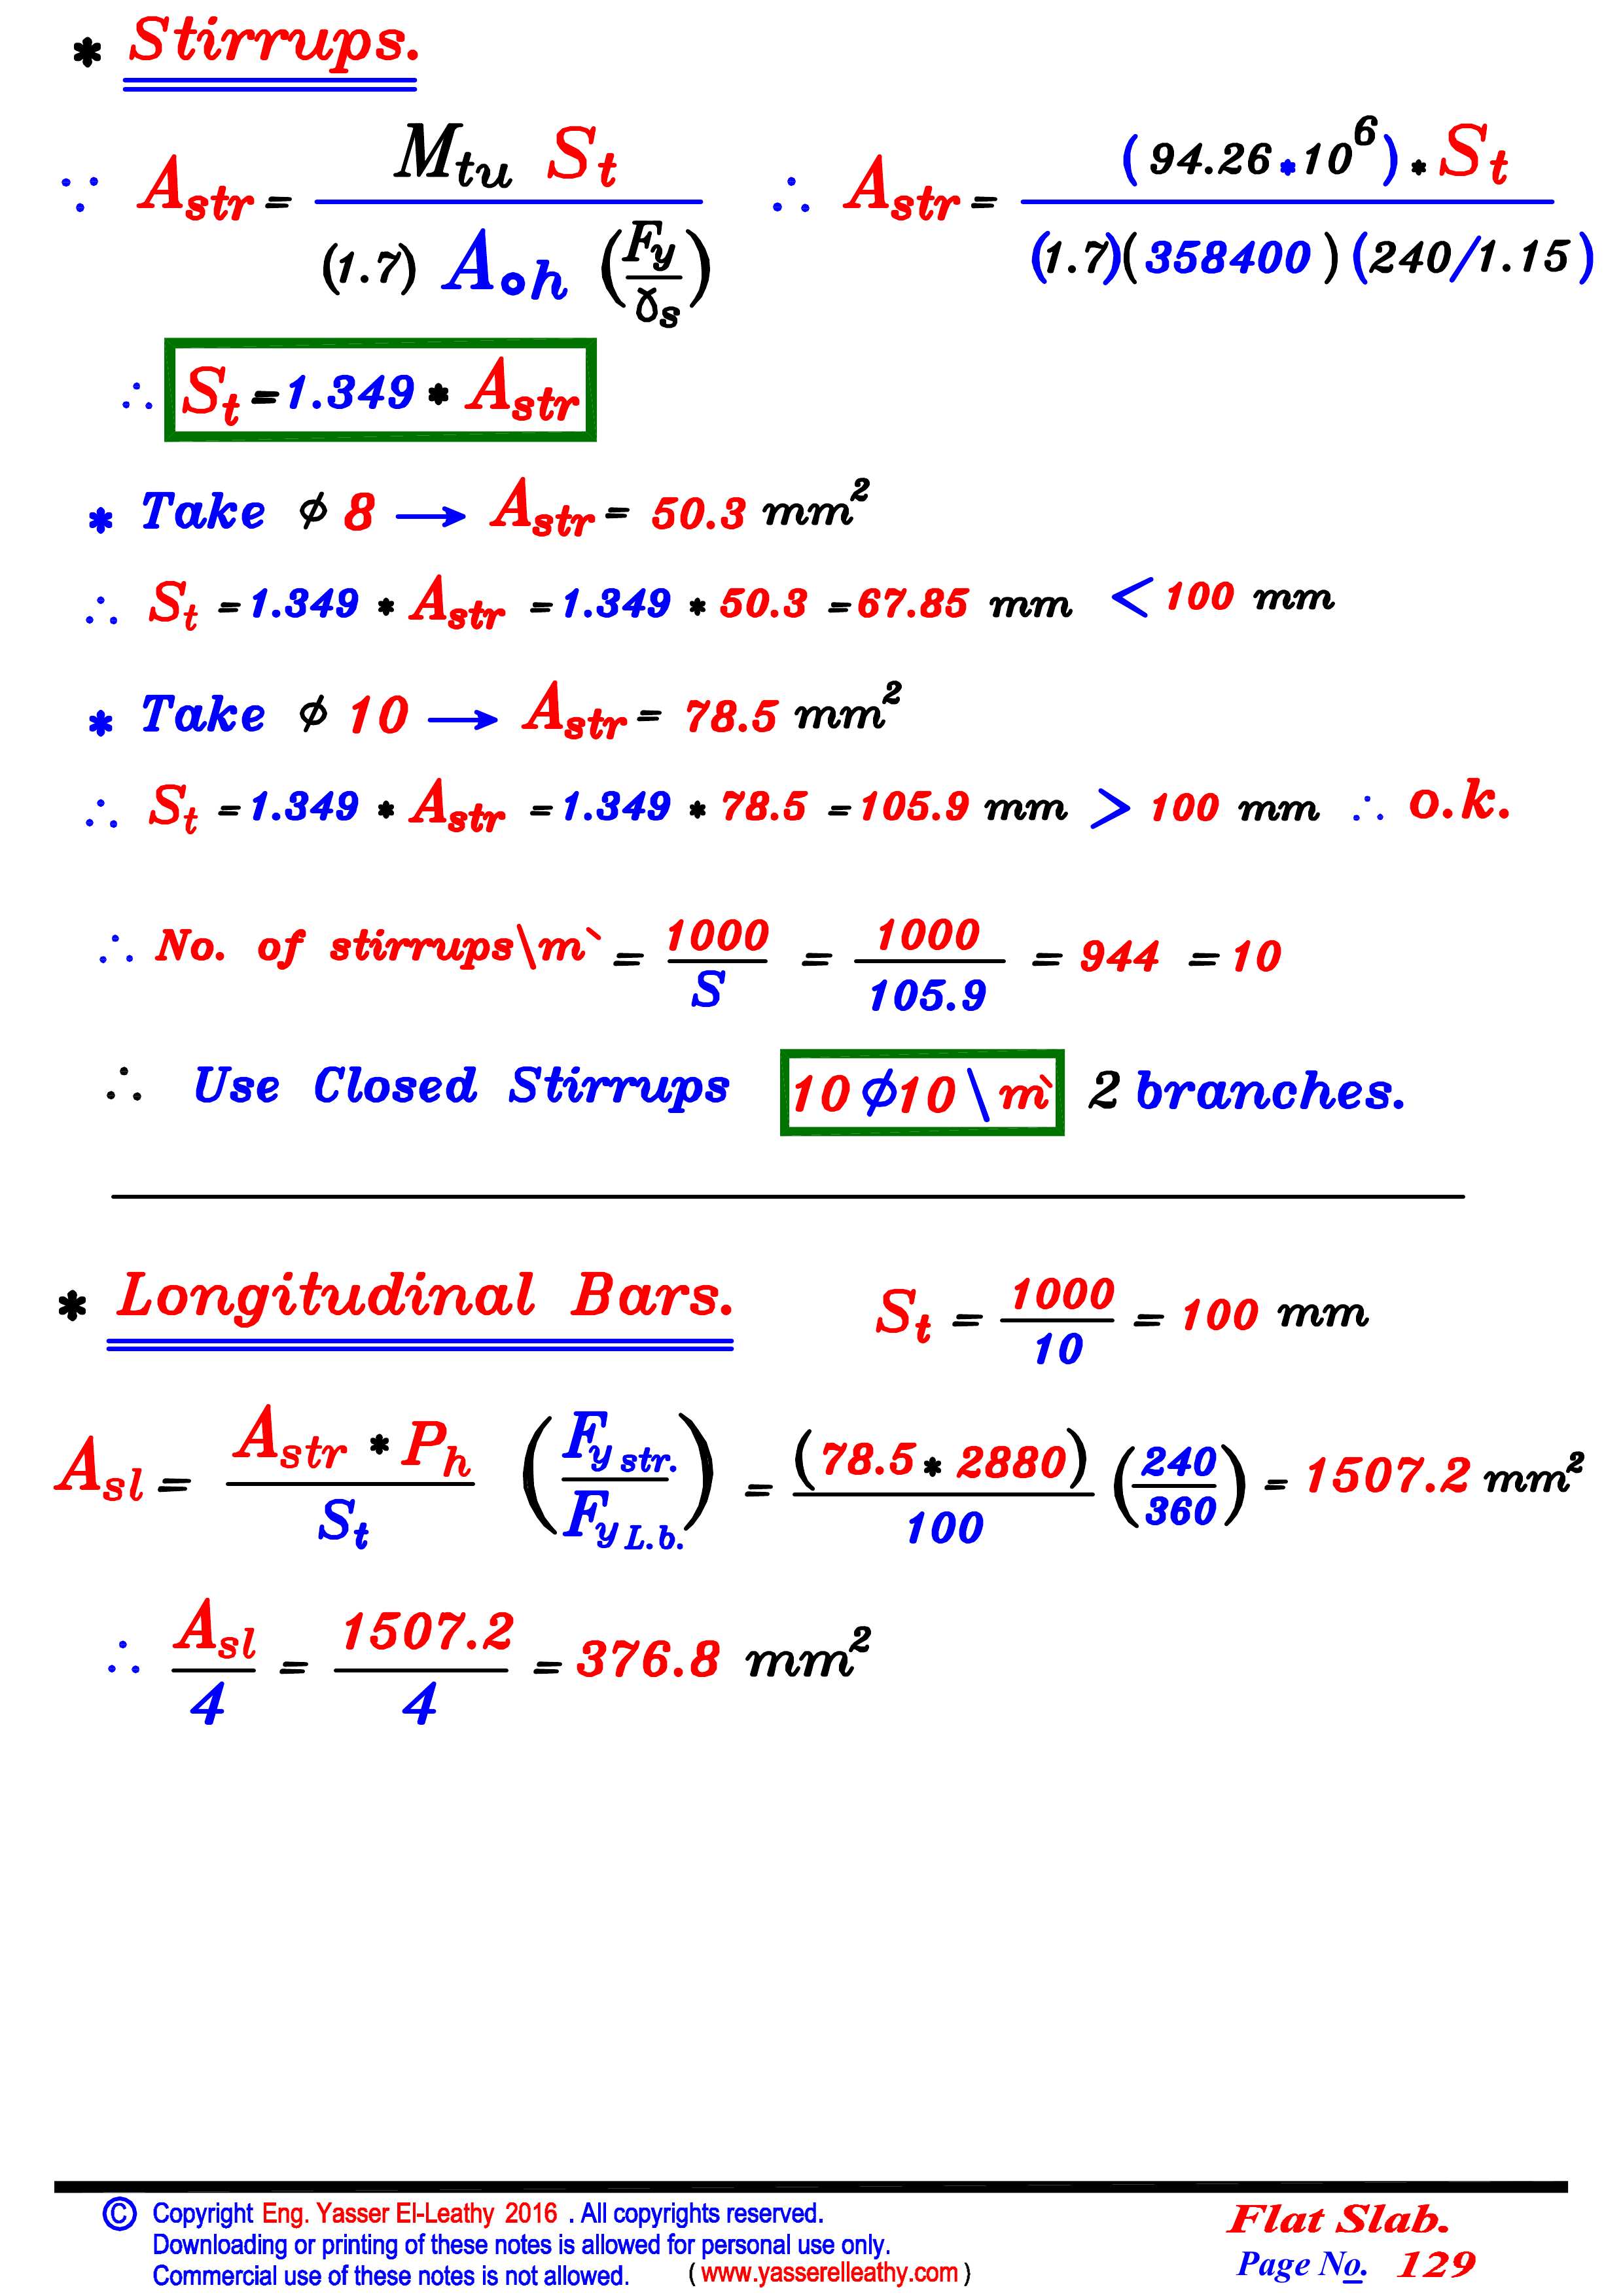 * Stirrups.
∵ Astr = Mtu St / (1.7) Aoh (Fy/ɣs) ∴ Astr = (94.26*10^6)*St / (1.7)(358400)(240/1.15)
∴ St = 1.349 * Astr
* Take ϕ 8 → Astr = 50.3 mm²
∴ St = 1.349 * Astr = 1.349 * 50.3 = 67.85 mm < 100 mm
* Take ϕ 10 → Astr = 78.5 mm²
∴ St = 1.349 * Astr = 1.349 * 78.5 = 105.9 mm > 100 mm ∴ o.k.
∴ No. of stirrups\m` = 1000/S = 1000/105.9 = 944 = 10
∴ Use Closed Stirrups 10 ϕ 10 \ m` 2 branches.
* Longitudinal Bars. St = 1000/10 = 100 mm
Asl = Astr * Ph / St (Fy str. / Fy L.b.) = (78.5 * 2880)/100 (240/360) = 1507.2 mm²
∴ Asl/4 = 1507.2/4 = 376.8 mm²
© Copyright Eng. Yasser El-Leathy 2016 . All copyrights reserved.
Downloading or printing of these notes is allowed for personal use only.
Commercial use of these notes is not allowed. ( www.yasserelleathy.com )
Flat Slab.
Page No. 129